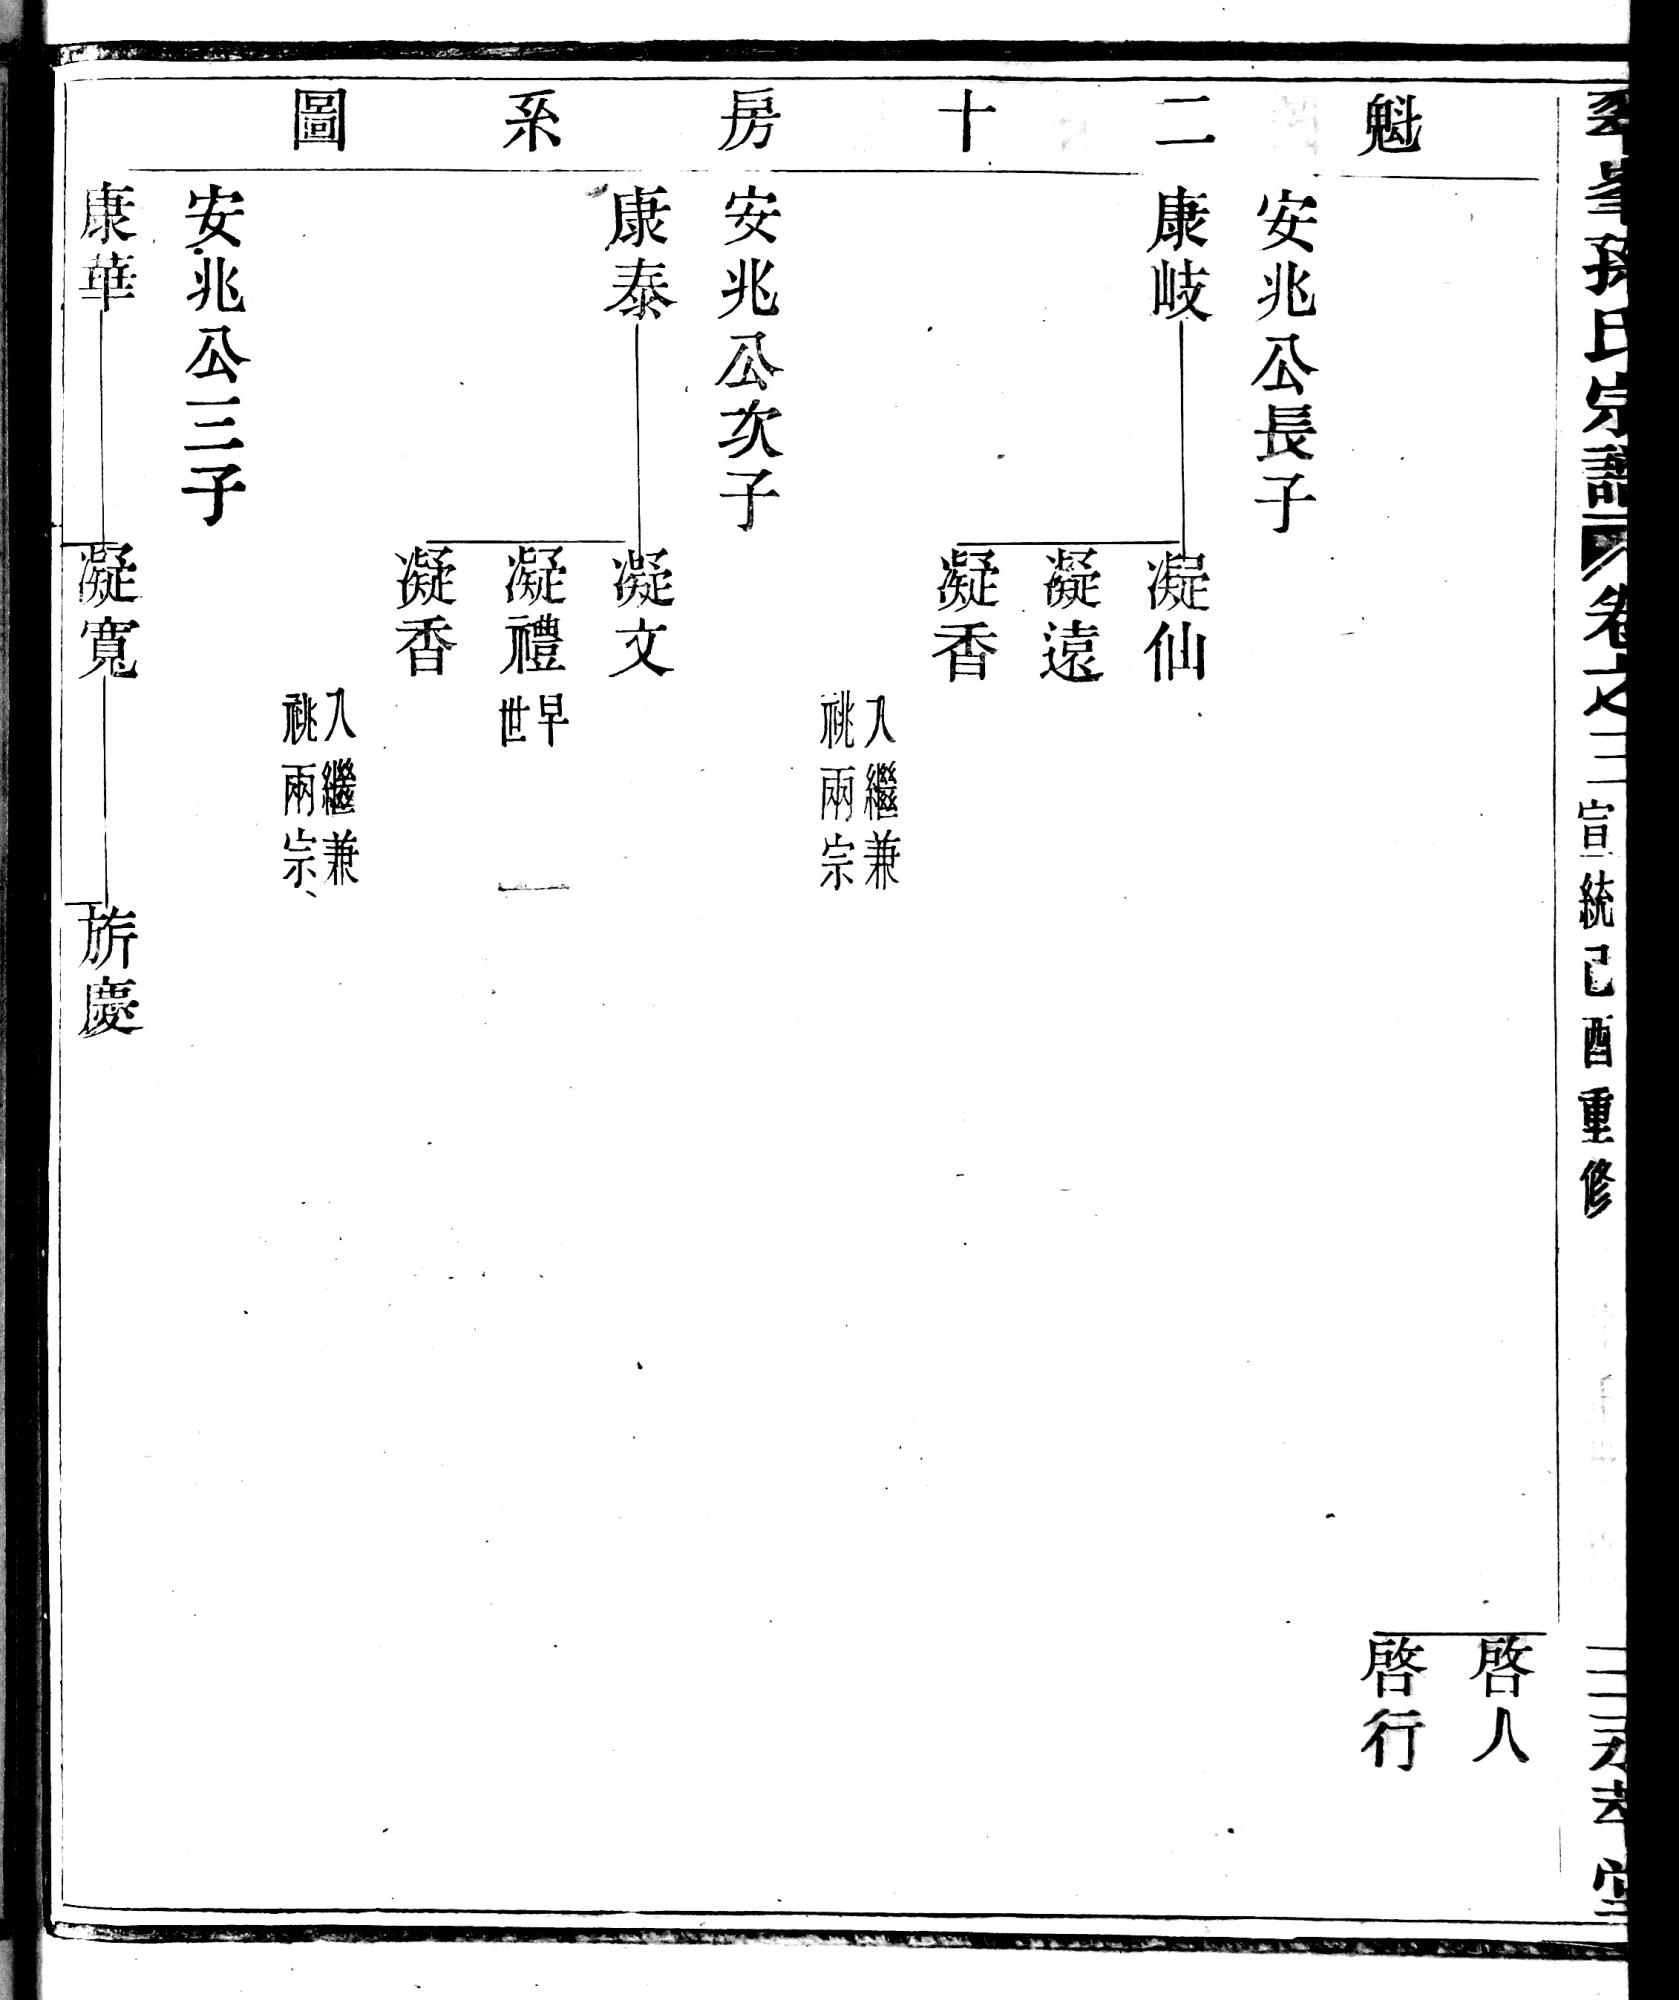 孫氏宗譜
卷之三
宣統己酉重修
堂
魁二十房系圖
啓人
啓行
安兆公長子
康岐
凝仙
凝遠
凝香
入繼兼
祧兩宗
安兆公次子
康泰
凝文
凝禮
早
世
凝香
入繼兼
祧兩宗
安兆公三子
康華
凝寬
旂慶